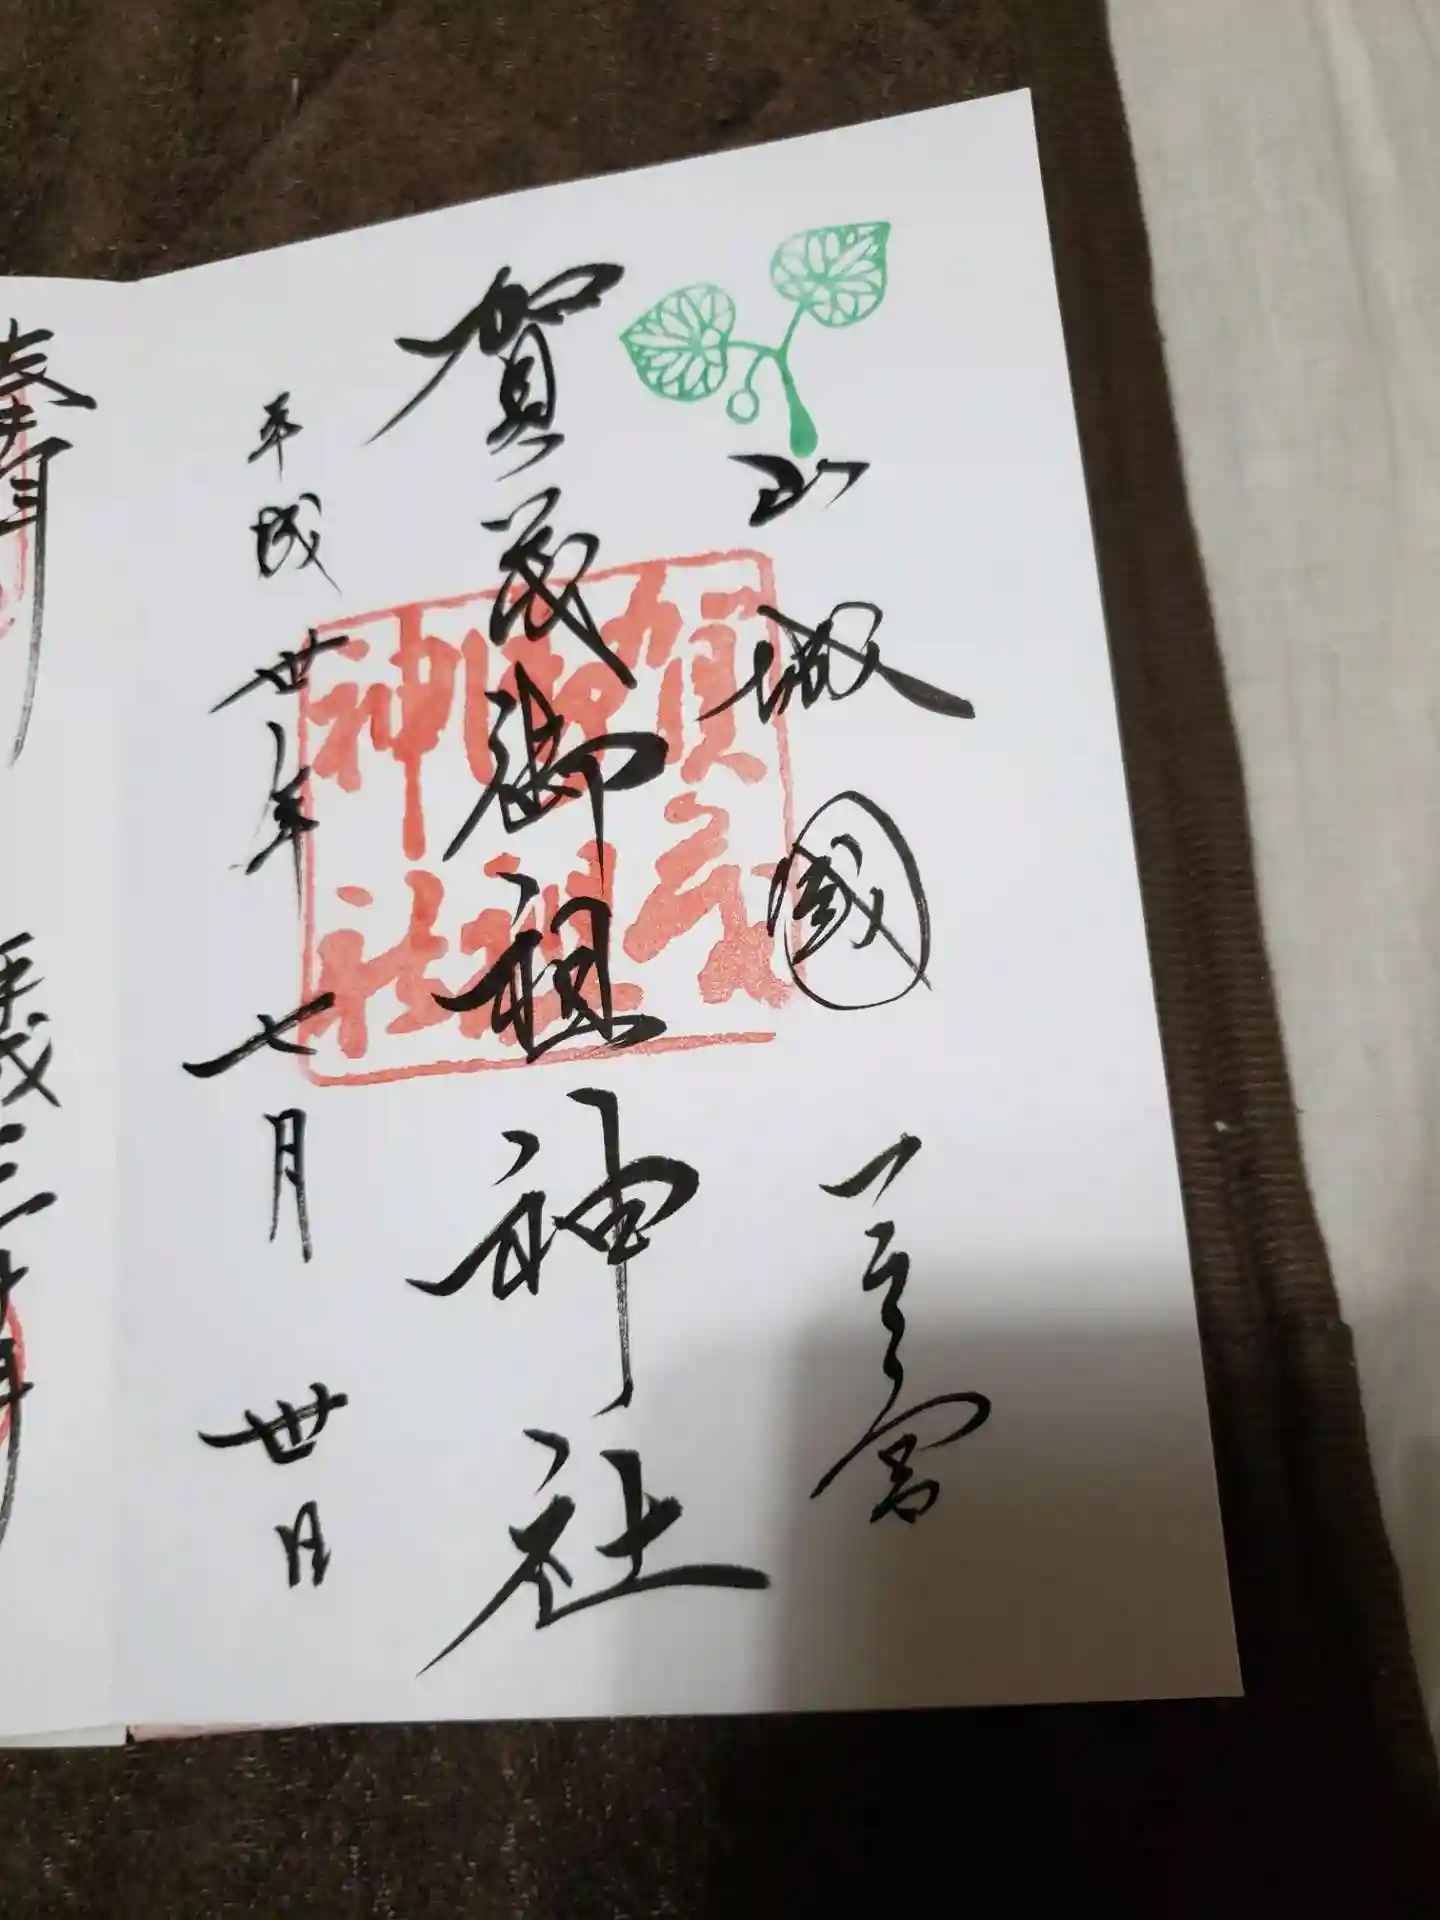 山城國一之宮
賀茂御祖神社
平成卅年七月卅日
賀茂
御祖
神社
奉拝
平成三十年